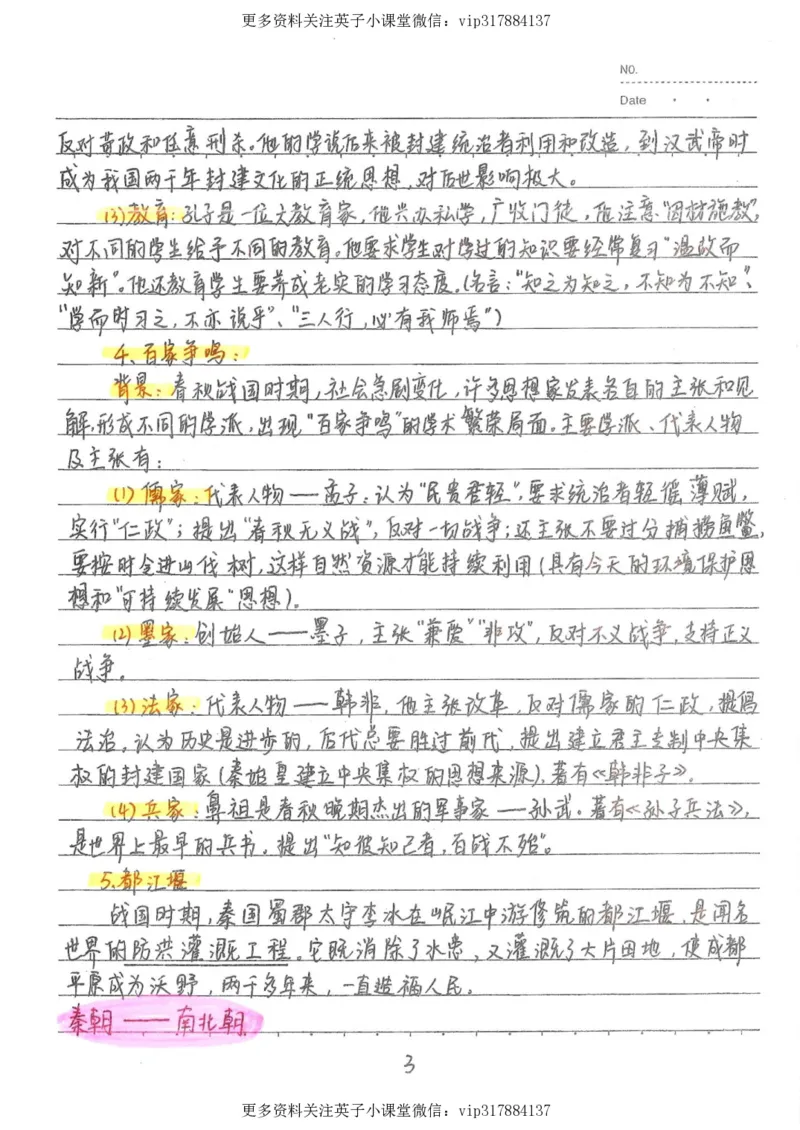 更多资料关注英子小课堂微信：vip317884137
NO.
Date
反对苛政和任意刑杀。他的学说后来被封建统治者利用和改造，到汉武帝时
成为我国两千年封建文化的正统思想，对后世影响极大。
(3)教育：孔子是一位大教育家，他兴办私学，广收门徒，他注意“因材施教”，
对不同的学生给予不同的教育。他要求学生对学过的知识要经常复习“温故而
知新”。他还教育学生要养成老实的学习态度。(名言：“知之为知之，不知为不知”、
“学而时习之，不亦说乎”、“三人行，必有我师焉”)
4、百家争鸣：
背景：春秋战国时期，社会急剧变化，许多思想家发表各自的主张和见
解，形成不同的学派，出现“百家争鸣”的学术繁荣局面。主要学派、代表人物
及主张有：
(1)儒家：代表人物——孟子：认为“民贵君轻”，要求统治者轻徭薄赋，
实行“仁政”；提出“春秋无义战”，反对一切战争；还主张不要过分捕捞鱼鳖，
要按时令进山伐树，这样自然资源才能持续利用(具有今天的环境保护思
想和“可持续发展”思想)。
(2)墨家：创始人——墨子，主张“兼爱”“非攻”，反对不义战争，支持正义
战争。
(3)法家：代表人物——韩非，他主张改革，反对儒家的仁政，提倡
法治。认为历史是进步的，后代总要胜过前代，提出建立君主专制中央集
权的封建国家(秦始皇建立中央集权的思想来源)。著有《韩非子》。
(4)兵家：鼻祖是春秋晚期杰出的军事家——孙武。著有《孙子兵法》，
是世界上最早的兵书。提出“知彼知己者，百战不殆”。
5、都江堰
战国时期，秦国蜀郡太守李冰在岷江中游修筑的都江堰，是闻名
世界的防洪灌溉工程。它既消除了水患，又灌溉了大片田地，使成都
平原成为沃野，两千多年来，一直造福人民。
秦朝——南北朝
3
更多资料关注英子小课堂微信：vip317884137